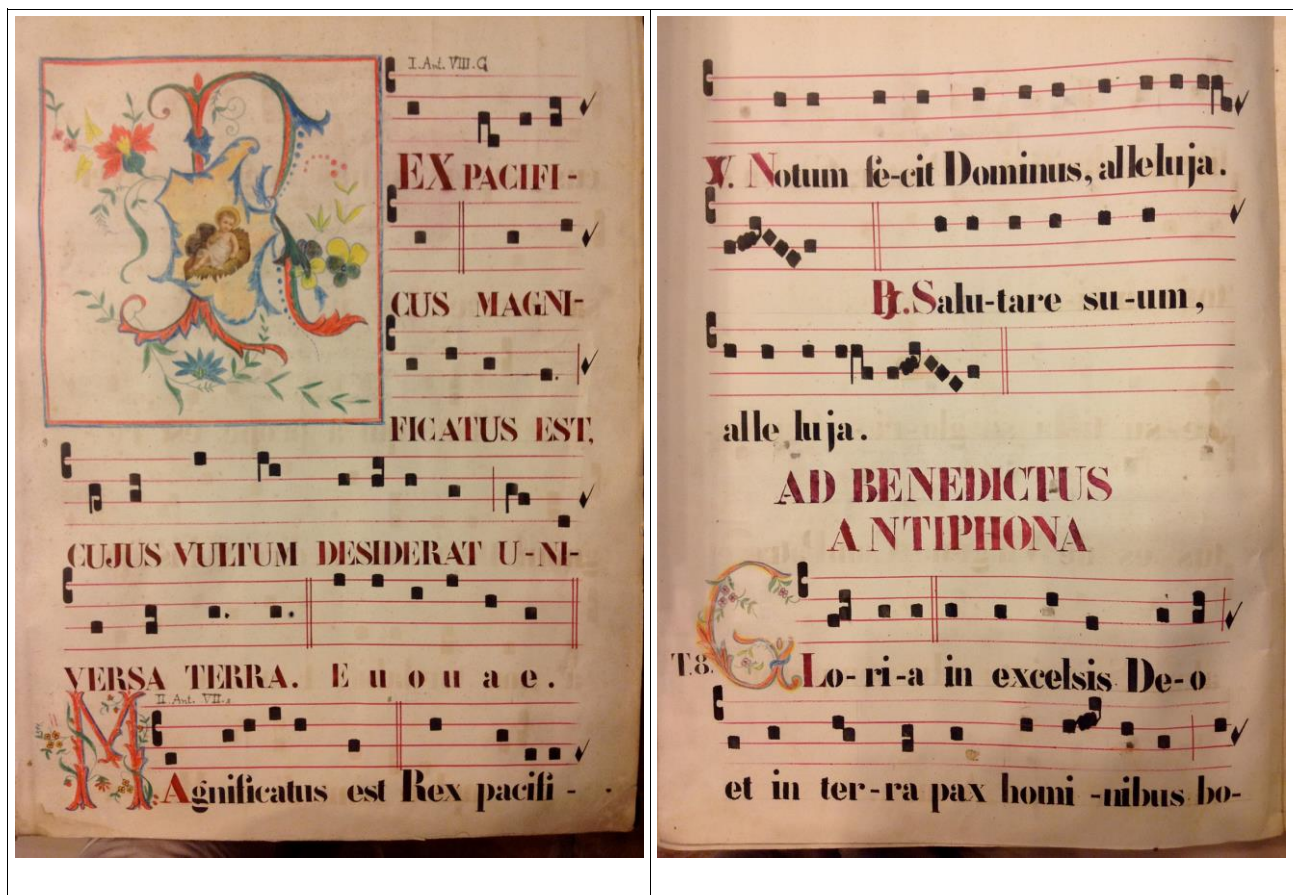 I. Ant. VIII. G
REX PACIFI-
CUS MAGNI-
FICATUS EST,
CUJUS VULTUM DESIDERAT U-NI-
VERSA TERRA. E u o u a e.
II. Ant. VII.
MAgnificatus est Rex pacifi-
℣. Notum fe-cit Dominus, alleluja.
℟. Salu-tare su-um,
alle luja.
AD BENEDICTUS
ANTIPHONA
T.8. GLo-ri-a in excelsis De-o
et in ter-ra pax homi-nibus bo-